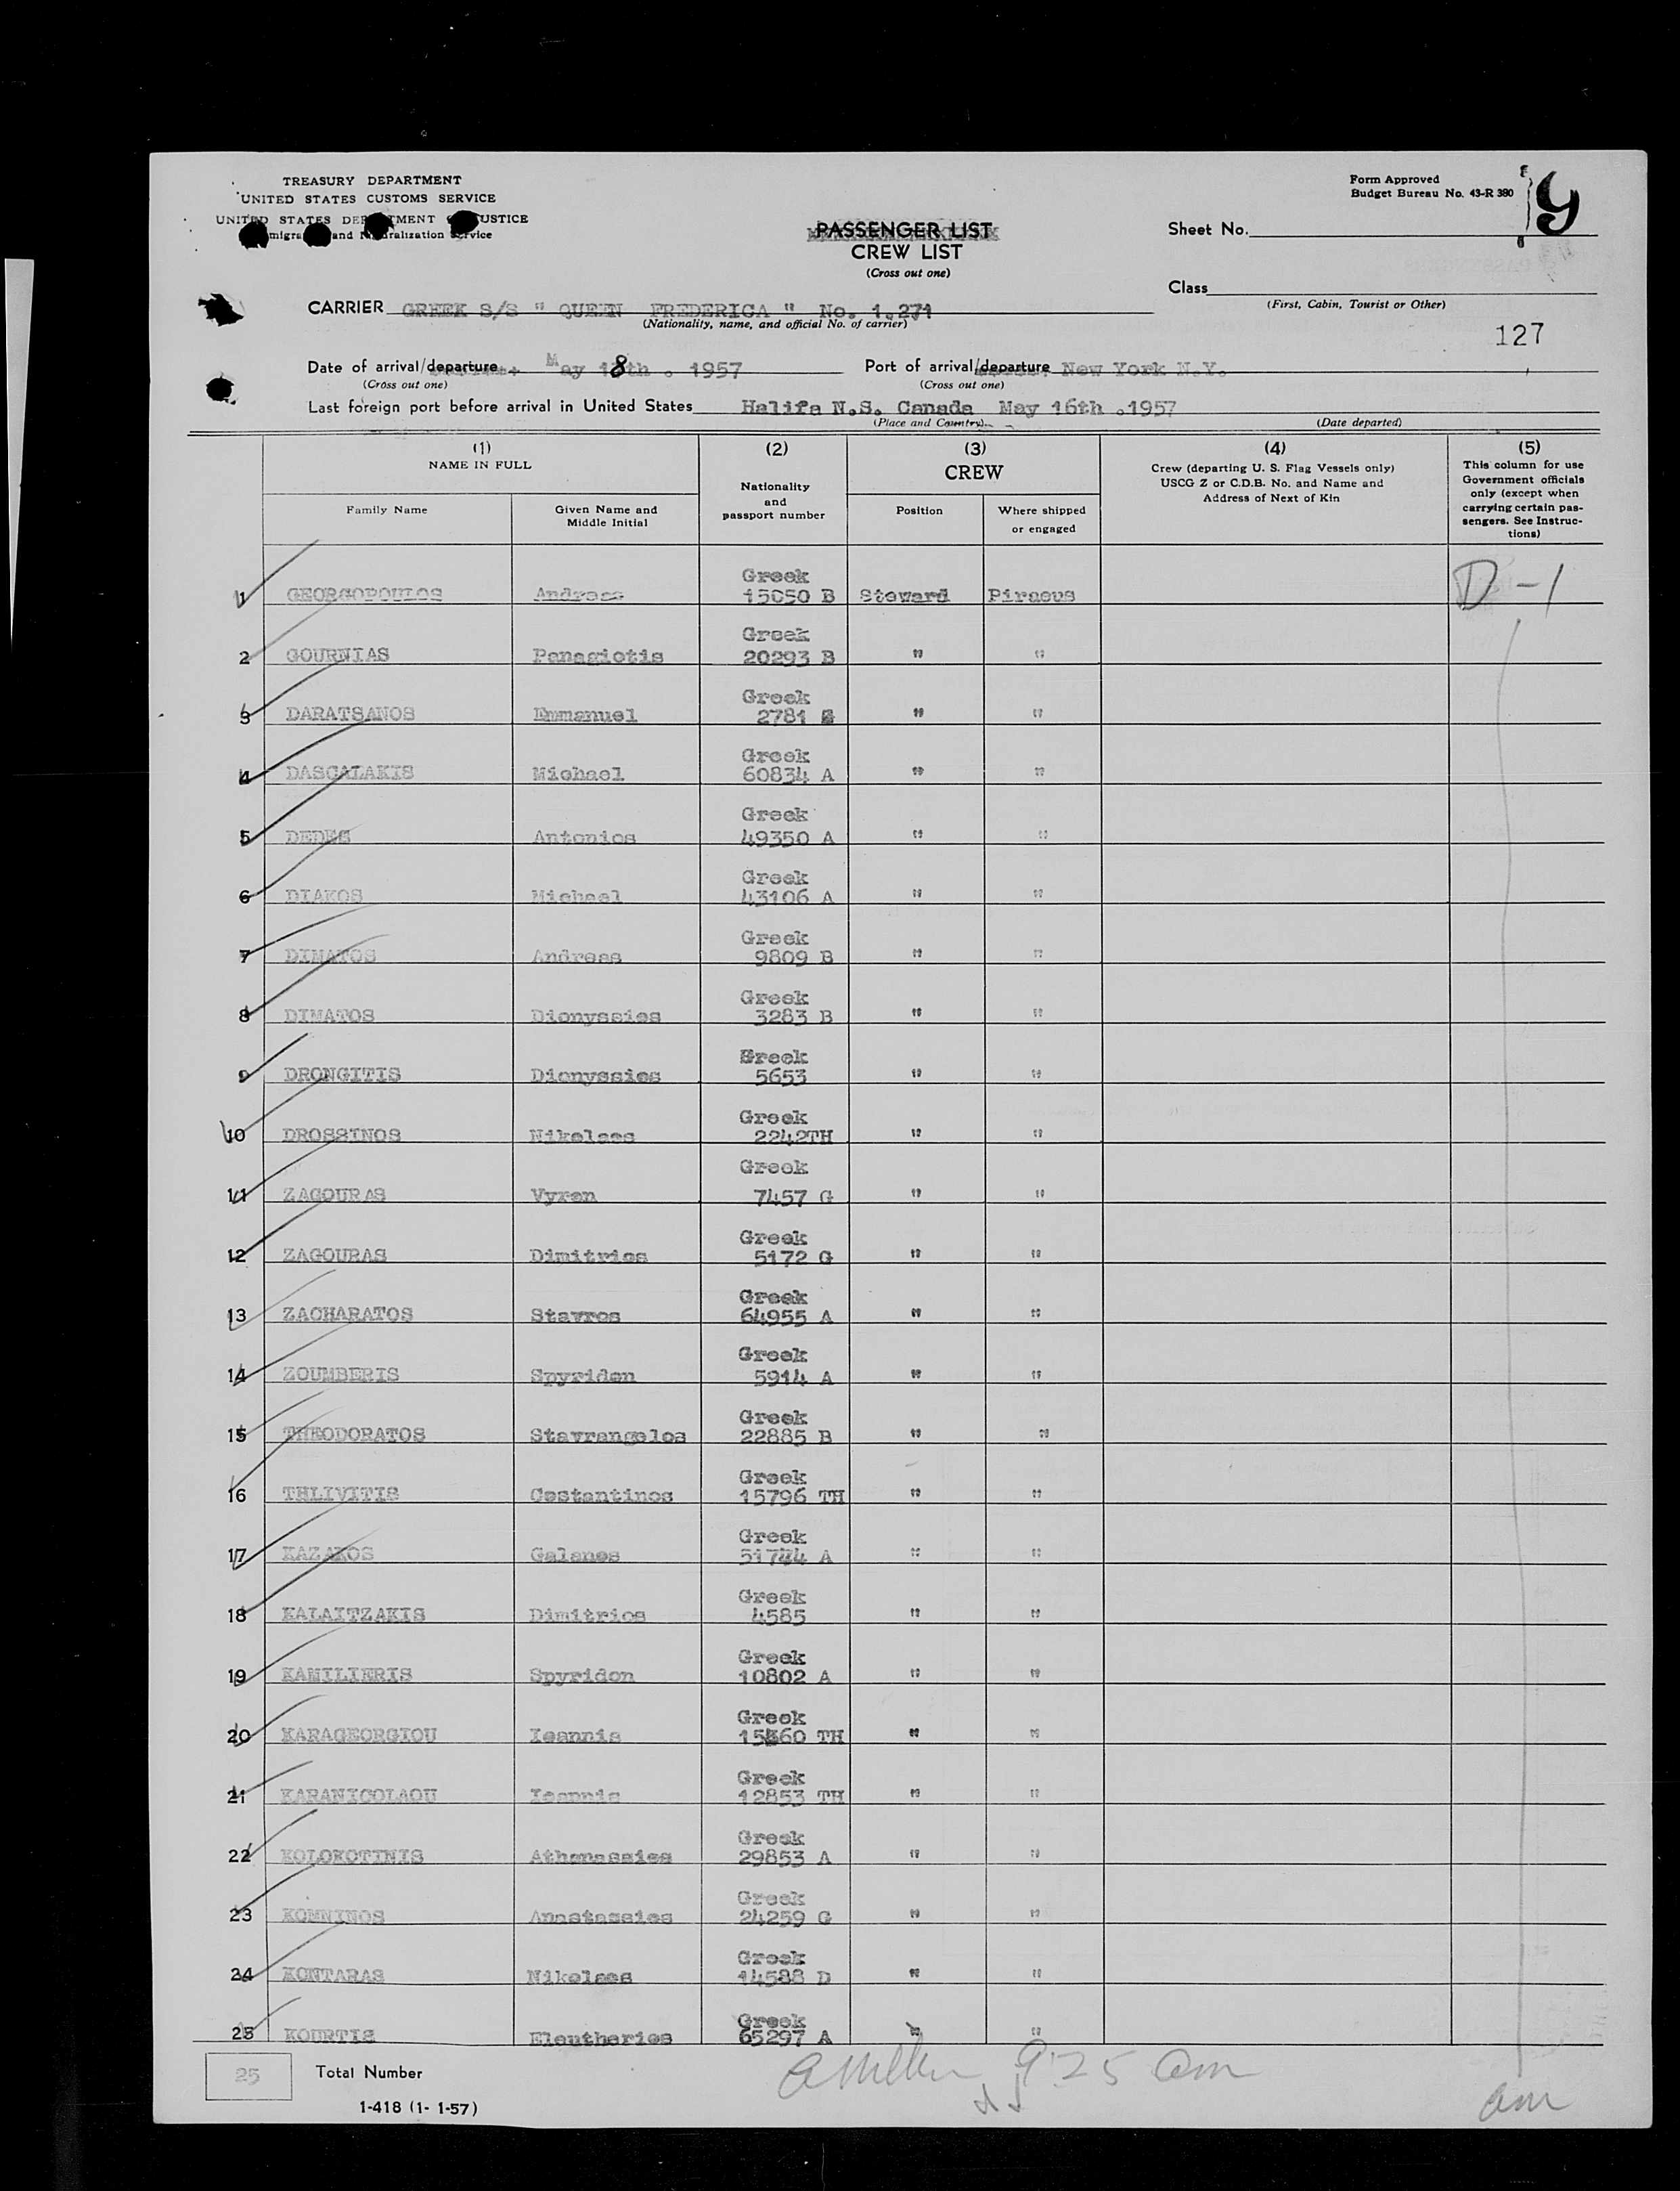 TREASURY DEPARTMENT
UNITED STATES CUSTOMS SERVICE
UNITED STATES DEPARTMENT OF JUSTICE
Immigration and Naturalization Service
Form Approved
Budget Bureau No. 43-R 380
9
PASSENGER LIST
CREW LIST
(Cross out one)
Sheet No.
Class
(First, Cabin, Tourist or Other)
CARRIER GREEK S/S " QUEEN FREDERICA " No. 1.271
(Nationality, name, and official No. of carrier)
127
Date of arrival/departure May 18th . 1957 Port of arrival/departure New York N.Y.
(Cross out one) (Cross out one)
Last foreign port before arrival in United States Halifa N.S. Canada May 16th .1957
(Place and Country) (Date departed)
(1) (2) (3) (4) (5)
NAME IN FULL
Family Name
Given Name and Middle Initial
Nationality and passport number
CREW
Position
Where shipped or engaged
Crew (departing U. S. Flag Vessels only)
USCG Z or C.D.B. No. and Name and
Address of Next of Kin
This column for use
Government officials
only (except when
carrying certain pas-
sengers. See Instruc-
tions)
Greek
1 GEORGOPOULOS Andreas 15050 B Steward Piraeus D-1
Greek
2 GOURNIAS Panagiotis 20293 B " "
Greek
3 DARATSANOS Emmanuel 2781 " "
Greek
4 DASCALAKIS Michael 60834 A " "
Greek
5 DEDES Antonios 49350 A " "
Greek
6 DIAKOS Michael 43106 A " "
Greek
7 DIMATOS Andreas 9809 B " "
Greek
8 DIMATOS Dionyssios 3283 B " "
Greek
9 DRONGITIS Dionyssios 5653 " "
Greek
10 DROSSINOS Nikolaos 2242TH " "
Greek
11 ZAGOURAS Vyron 7457 G " "
Greek
12 ZAGOURAS Dimitrios 5172 G " "
Greek
13 ZACHARATOS Stavros 64955 A " "
Greek
14 ZOUMBERIS Spyridon 5914 A " "
Greek
15 THEODORATOS Stavrangelos 22885 B " "
Greek
16 THLIVITIS Costantinos 15796 TH " "
Greek
17 KAZAKOS Galanos 51744 A " "
Greek
18 KALAITZAKIS Dimitrios 4585 " "
Greek
19 KAMILIERIS Spyridon 10802 A " "
Greek
20 KARAGEORGIOU Ioannis TH " "
Greek
21 KARANICOLAOU Ioannis 12853 TH " "
Greek
22 KOLOKOTINIS Athanassios 29853 A " "
Greek
23 KOMNINOS Anastassios 24259 G " "
Greek
24 KONTARAS Nikolaos 14588 D " "
Greek
25 KOURTIS Eleutherios 65297 A " "
25 Total Number
9:25 am
am
I-418 (1- 1-57)